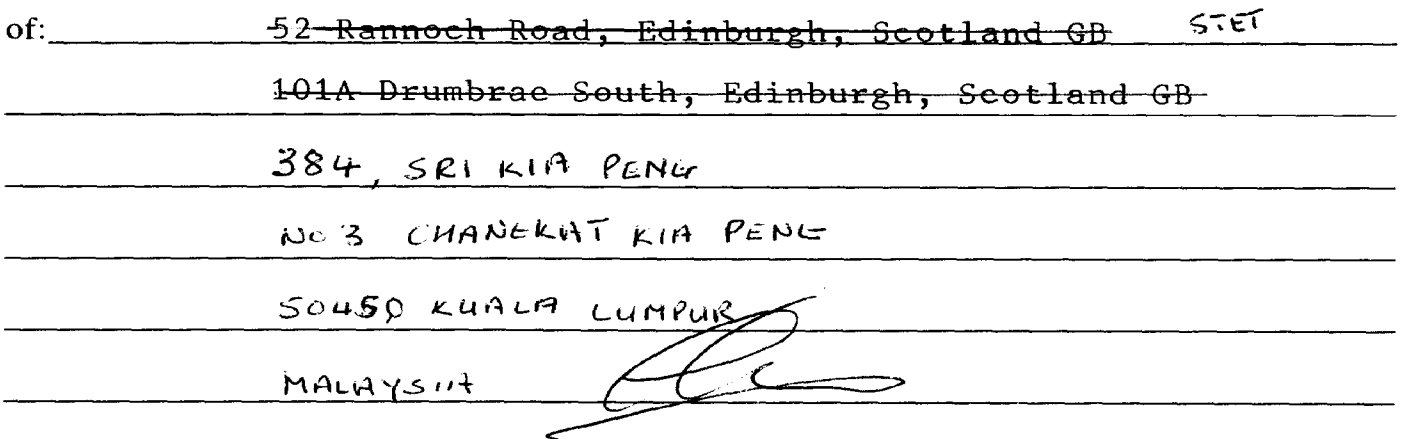 of: 52 Rannoch Road, Edinburgh, Scotland GB STET
101A Drumbrae South, Edinburgh, Scotland GB
384, SRI KIA PENG
NO 3 CHANGKAT KIA PENG
50450 KUALA LUMPUR
MALAYSIA